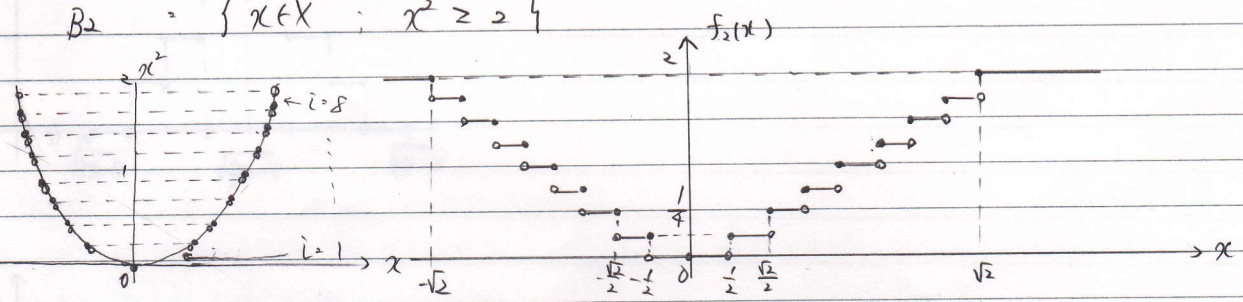 B2 = { x∈X ; x² ≥ 2 }
x²
2
1
0
← i=8
i=1
x
f₂(x)
2
1/4
0
-√2
-√2/2
-1/2
1/2
√2/2
√2
x